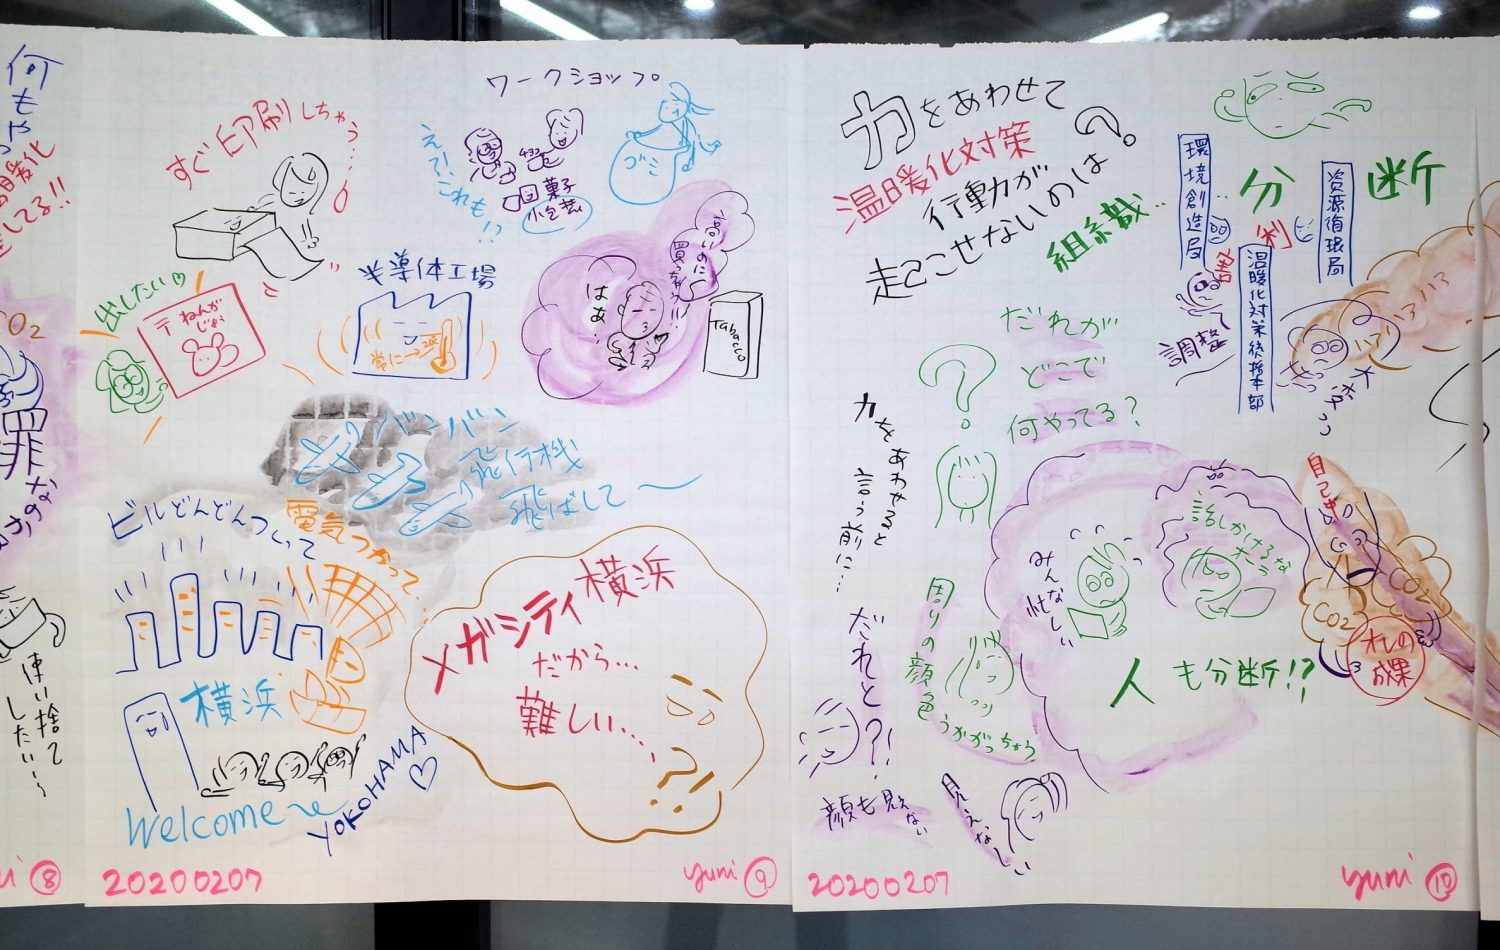 何もや
温暖化
してる!!
CO2
罪
なのか
使い捨て
したい〜
8
すぐ印刷しちゃう…
ワークショップ。
えっ!これも!?
菓子
小包装
ゴミ
出したい♡
〒ねんが
じょう
半導体工場
常に→
高いのに
買っちゃう!!!
はあ…
Tabacco
バンバン
飛行機
飛ばして〜
ビルどんどんつくって
電気つかって…
横浜
Welcome〜
YOKOHAMA♡
メガシティ横浜
だから…
難しい…
20200207
yuni 9
力をあわせて
温暖化対策
行動が
起こせないのは?
組織…
分断
環境創造局
資源循環局
温暖化対策統括本部
利
害
調整
大変っっ
だれが
どこで
何やってる?
力をあわせると
言う前に…
だれと?!
顔も見えない
見えなしい
周りの顔色
うかがっちゃう
みんな忙しい
話しかけるな
オーラ
人も分断!?
自己中
CO2
CO2
オレの
成果
20200207
yuni 10